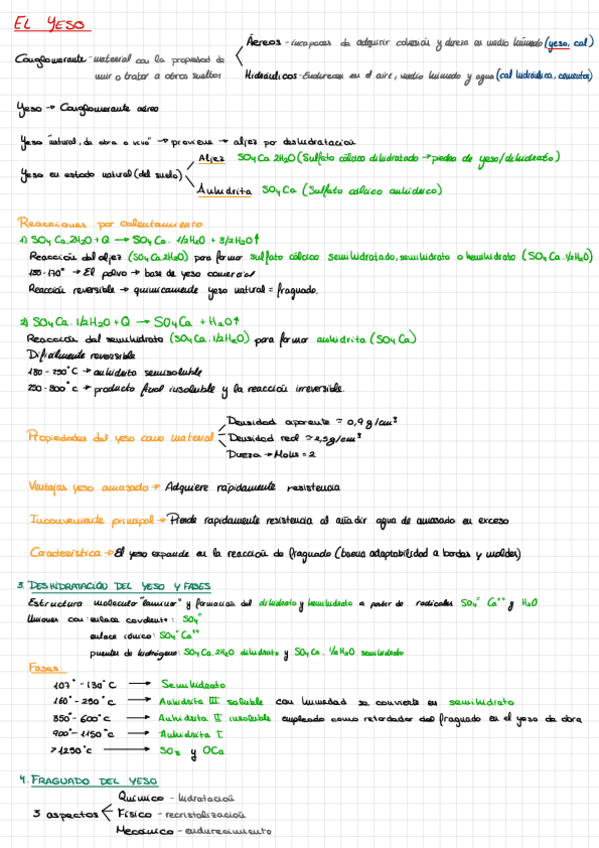 EL YESO
Aéreos - incapaces de adquirir cohesión y dureza en medio húmedo (yeso, cal)
Conglomerante - material con la propiedad de
unir o trabar a otros sueltos
Hidráulicos - Endurecen en el aire, medio húmedo y agua (cal hidráulica, cementos)
Yeso → Conglomerante aéreo
Yeso "natural, de obra o vivo" → proviene → aljez por deshidratación
Aljez SO4Ca 2H2O (Sulfato cálcico dihidratado → piedra de yeso/dihidrato)
Yeso en estado natural (del suelo)
Anhidrita SO4Ca (Sulfato cálcico anhídrico)
Reacciones por calentamiento
1) SO4Ca.2H2O + Q → SO4Ca. 1/2H2O + 3/2H2O↑
Reacción del aljez (SO4Ca2H2O) para formar sulfato cálcico semihidratado, semihidrato o hemihidrato (SO4Ca.1/2H2O)
130-170° → El polvo → base de yeso comercial
Reacción reversible → químicamente yeso natural = fraguado.
2) SO4Ca.1/2H2O + Q → SO4Ca + H2O↑
Reacción del semihidrato (SO4Ca.1/2H2O) para formar anhidrita (SO4Ca)
Difícilmente reversible
180-250°C → anhidrita semisoluble
250-300°C → producto final insoluble y la reacción irreversible.
Densidad aparente ≈ 0,9g/cm³
Propiedades del yeso como material - Densidad real ≈ 2,5g/cm³
Dureza → Mohs = 2
Ventajas yeso amasado → Adquiere rápidamente resistencia
Inconveniente principal → Pierde rapidamente resistencia al añadir agua de amasado en exceso
Característica → El yeso expande en la reacción de fraguado (buena adaptabilidad a bordes y moldes)
3. DESHIDRATACIÓN DEL YESO Y FASES
Estructura molecular "laminar" y formación del dihidrato y hemihidrato a partir de radicales SO4= Ca++ y H2O
Uniones con: enlace covalente: SO4=
enlace iónico: SO4= Ca++
puentes de hidrógeno: SO4Ca.2H2O dihidrato y SO4Ca. 1/2H2O semihidrato
Fases:
107°-130°C → Semihidrato
160°-250°C → Anhidrita III soluble con humedad se convierte en semihidrato
350°-600°C → Anhidrita II insoluble empleado como retardador del fraguado en el yeso de obra
900°-1150°C → Anhidrita I
>1250°C → SO3 y OCa
4. FRAGUADO DEL YESO
Químico - hidratación
3 aspectos Físico - recristalización
Mecánico - endurecimiento